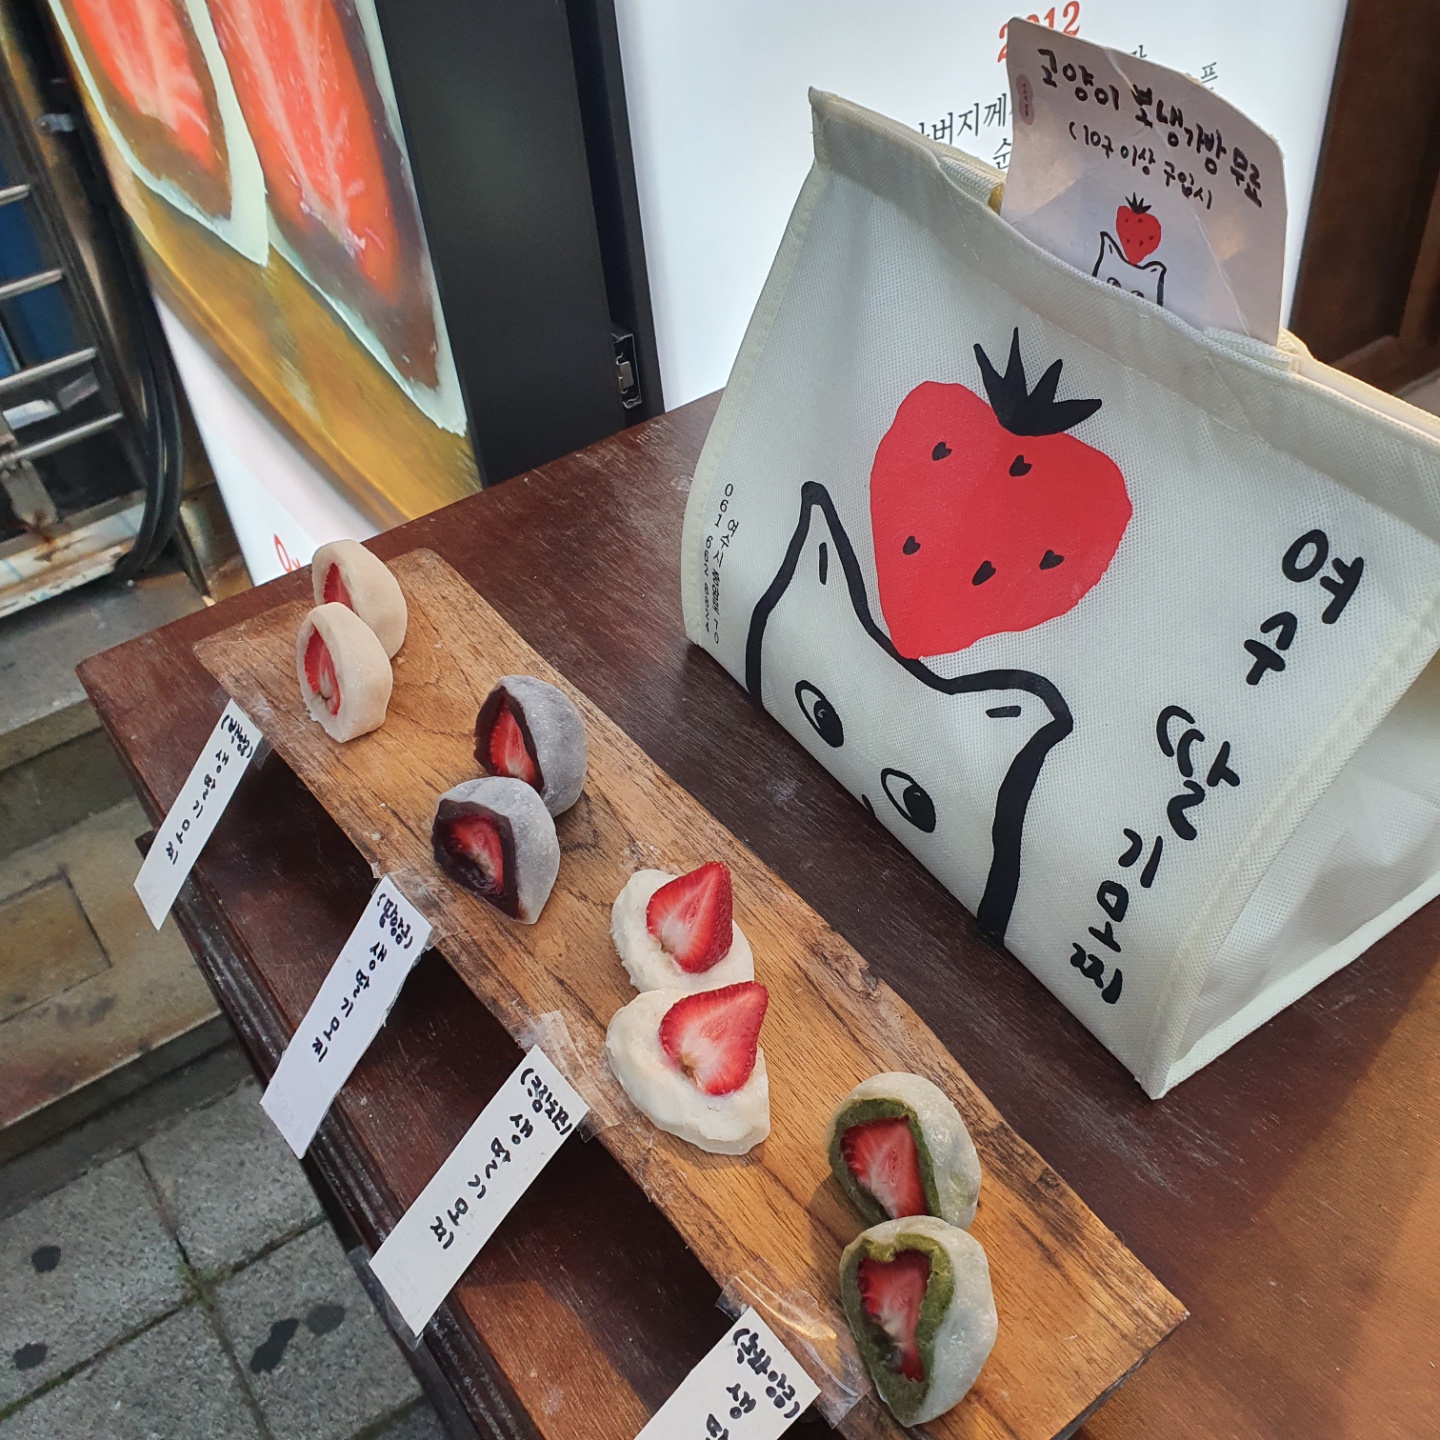 2012
버지께
순
고양이 보냉가방 무료
(10구 이상 구입시
여수
딸기모찌
(백앙금)
생딸기모찌
(팥앙금)
생딸기모찌
(크림치즈)
생딸기모찌
(녹차앙금)
생딸